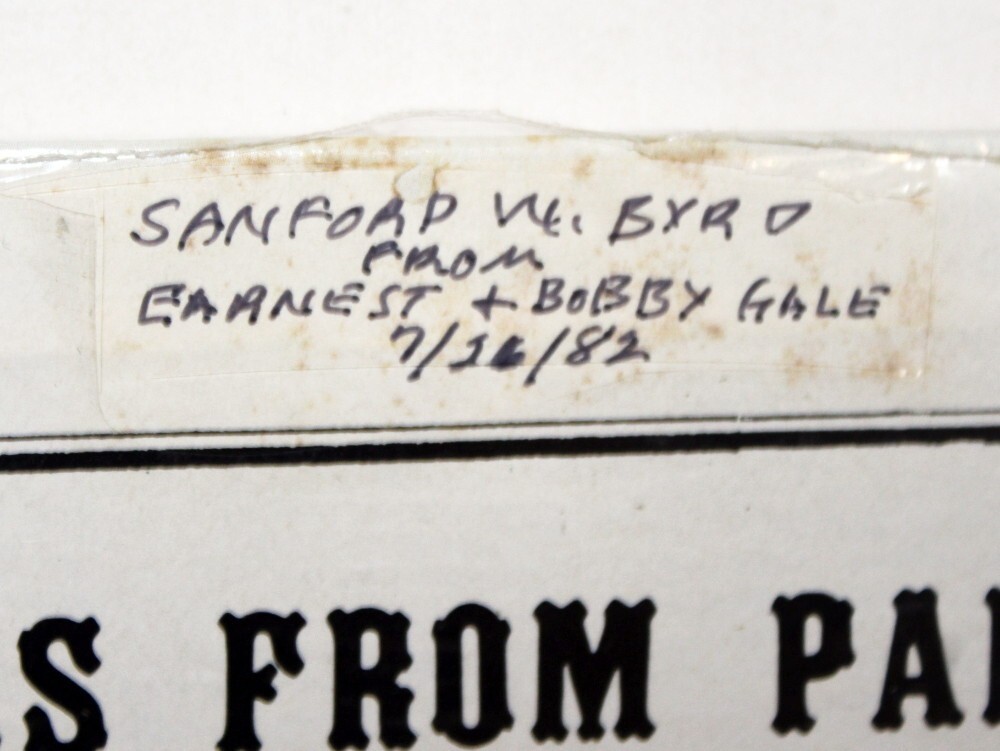 SANFORD W. BYRD
FROM
EARNEST + BOBBY GALE
7/16/82
S FROM PA